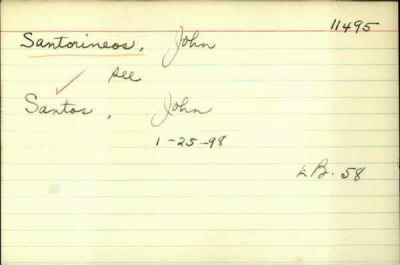 11495
Santorineos, John
see
Santos, John
1-25-98
LB. 58